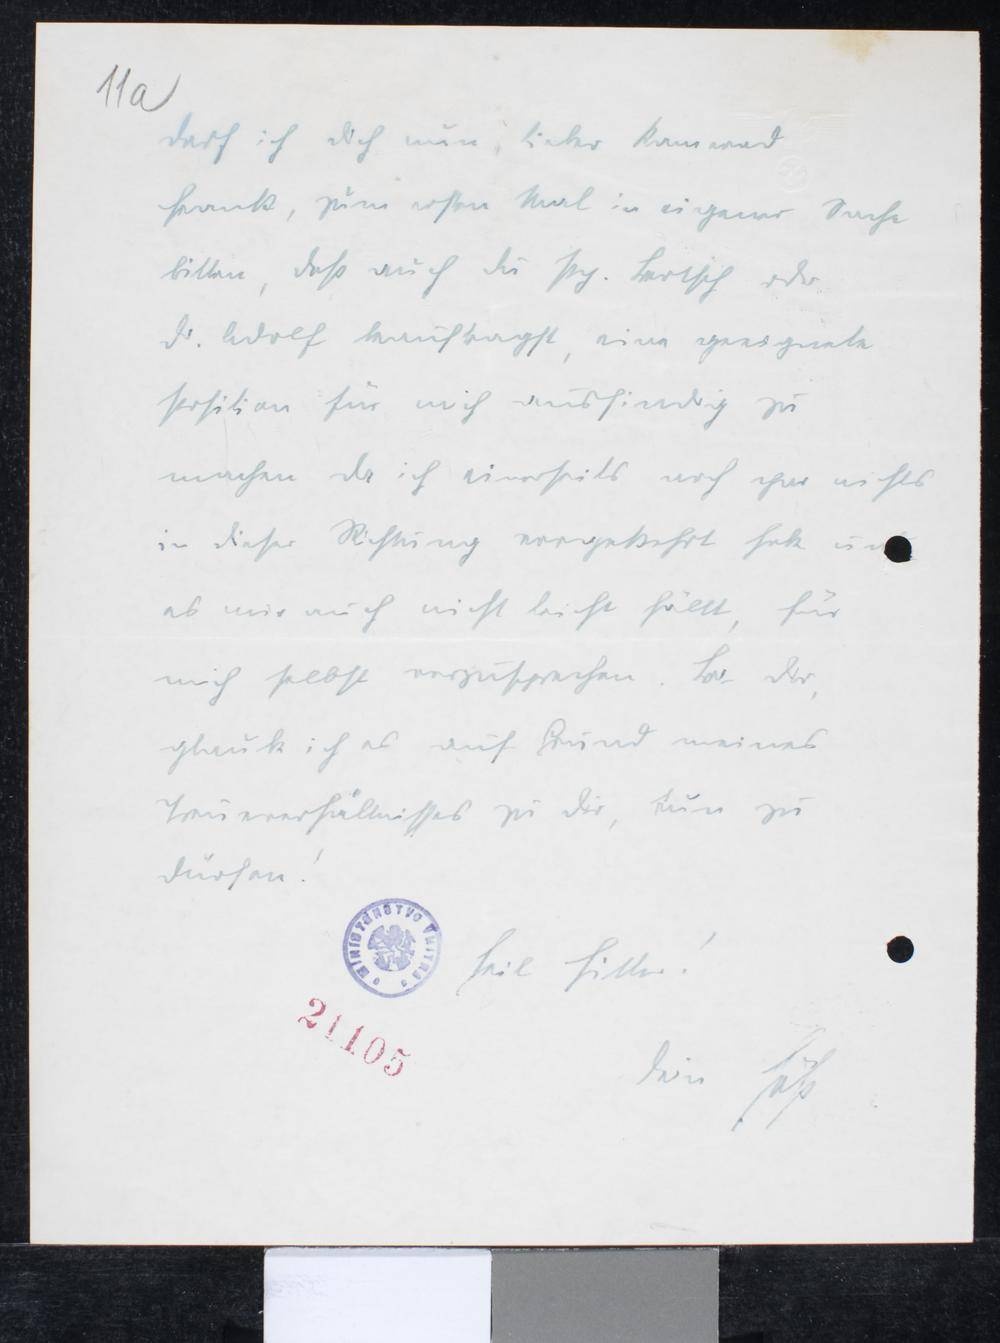 11a
Darf ich Dich nun, lieber Kamerad
Frank, zum ersten Mal in eigener Sache
bitten, daß auch Du Pg. Bertsch oder
Dr. Adolf beauftragst, eine geeignete
Position für mich ausfindig zu
machen da ich einerseits noch gar nichts
in dieser Richtung vorgekehrt habe und
es mir auch nicht leicht fällt, für
mich selbst vorzusprechen. Bei Dir,
glaube ich es auf Grund meines
Treueverhältnisses zu Dir, tun zu
dürfen!
MINISTERSTVO VNITRA
Heil Hitler!
21105
Dein